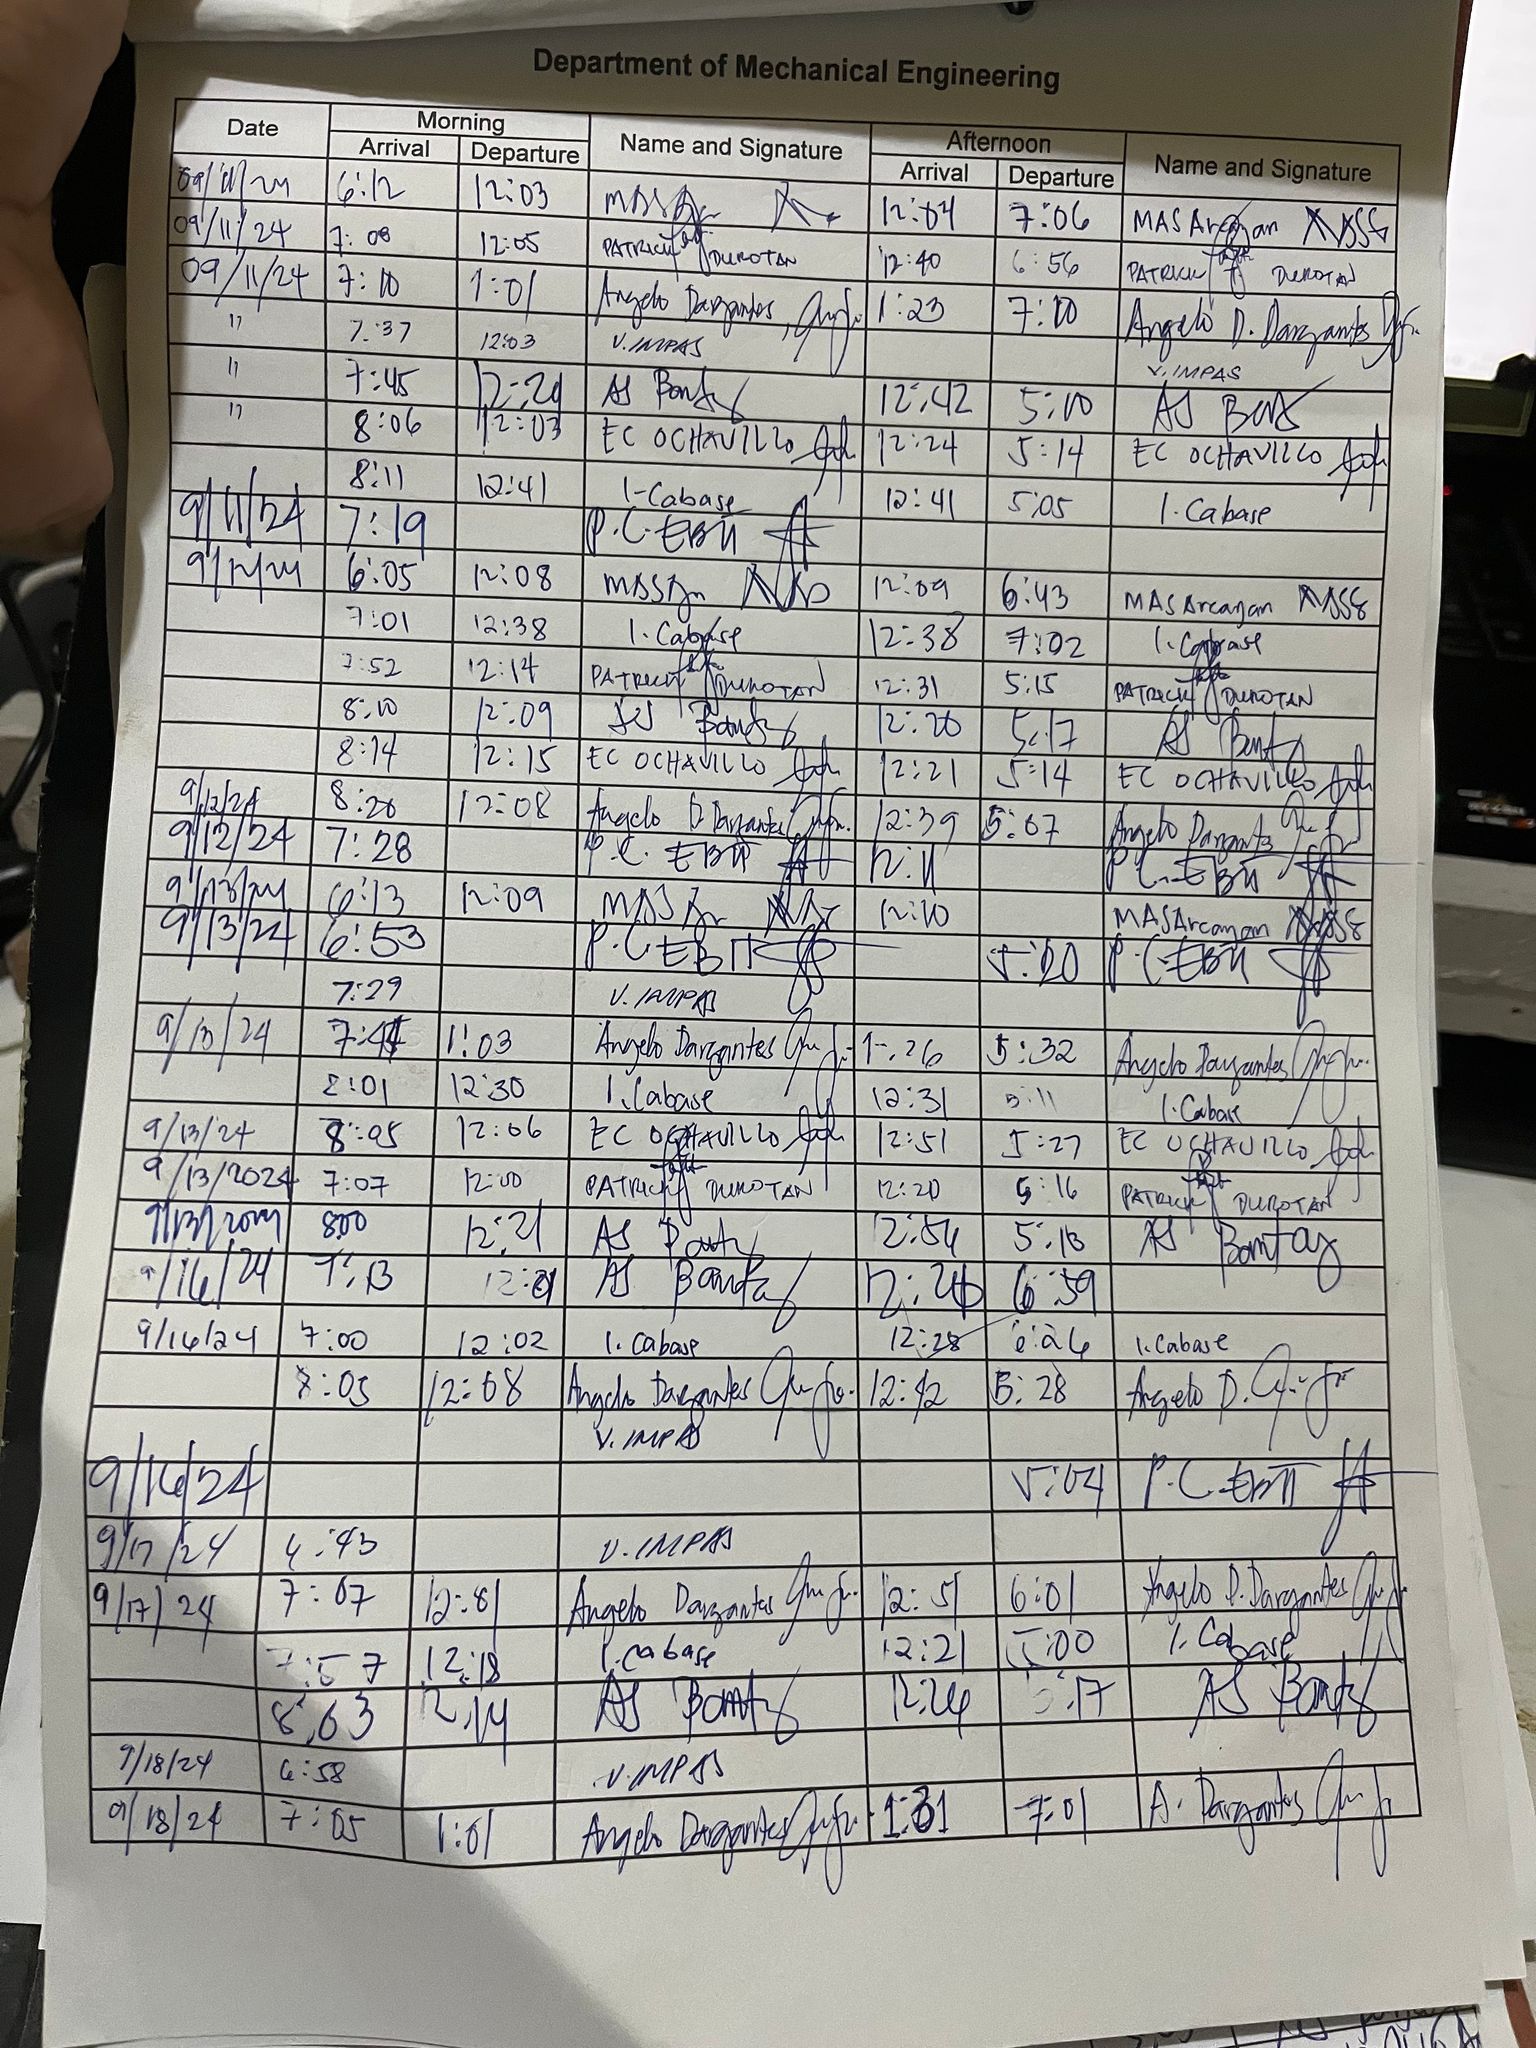 Department of Mechanical Engineering
Date Morning Name and Signature Afternoon Name and Signature
Arrival Departure Arrival Departure
09/11/24 6:12 12:03 12:04 7:06 MASArcayan
09/11/24 7:08 12:05 PATRICK DUROTAN 12:40 6:56 PATRICK DUROTAN
09/11/24 7:10 1:01 Angelo Dargantes 1:23 7:10 Angelo D. Dargantes
" 7:37 12:03 V. IMPAS V. IMPAS
" 7:45 AS Bantay 12:42 5:10 AS
" 8:06 12:03 EC OCHAVILLO 12:24 5:14 EC OCHAVILLO
8:11 12:41 I. Cabase 12:41 5:05 I. Cabase
9/11/24 7:19 P.C. EBII
9/12/24 6:05 12:08 12:09 6:43 MASArcayan
7:01 12:38 I. Cabase 12:38 7:02 I. Cabase
7:52 12:14 PATRICK DUROTAN 12:31 5:15 PATRICK DUROTAN
8:10 12:09 AS Bantay 12:20 5:17 AS Bantay
8:14 12:15 EC OCHAVILLO 12:21 5:14 EC OCHAVILLO
9/12/24 8:20 12:08 Angelo D. Dargantes 12:39 5:07 Angelo Dargantes
9/12/24 7:28 P.C. EBII 12:11 P.C. EBII
9/13/24 6:13 12:09 12:10 MASArcayan
9/13/24 6:53 P.C. EBII 5:20 P.C. EBII
7:29 V. IMPAS
9/13/24 1:03 Angelo Dargantes 1:26 5:32 Angelo Dargantes
8:01 12:30 I. Cabase 12:31 5:11 I. Cabase
9/13/24 8:05 12:06 EC OCHAVILLO 12:51 5:27 EC OCHAVILLO
9/13/2024 7:07 12:00 PATRICK DUROTAN 12:20 5:16 PATRICK DUROTAN
9/13/2024 8:00 12:21 AS Bantay 12:54 5:18 AS Bantay
9/16/24 7:13 AS Bantay 6:59
9/16/24 7:00 12:02 I. Cabase 12:28 6:26 I. Cabase
12:08 Angelo Dargantes 12:42 5:28 Angelo D.
V. IMPAS
9/16/24 5:04 P.C. EBII
9/17/24 6:43 V. IMPAS
9/17/24 7:07 Angelo Dargantes 12:51 6:01 Angelo D. Dargantes
7:57 12:18 I. Cabase 12:21 5:00 I. Cabase
8:03 12:14 AS Bantay 12:26 5:17 AS Bantay
9/18/24 6:58 V. IMPAS
9/18/24 7:05 1:01 Angelo Dargantes 7:01 A. Dargantes